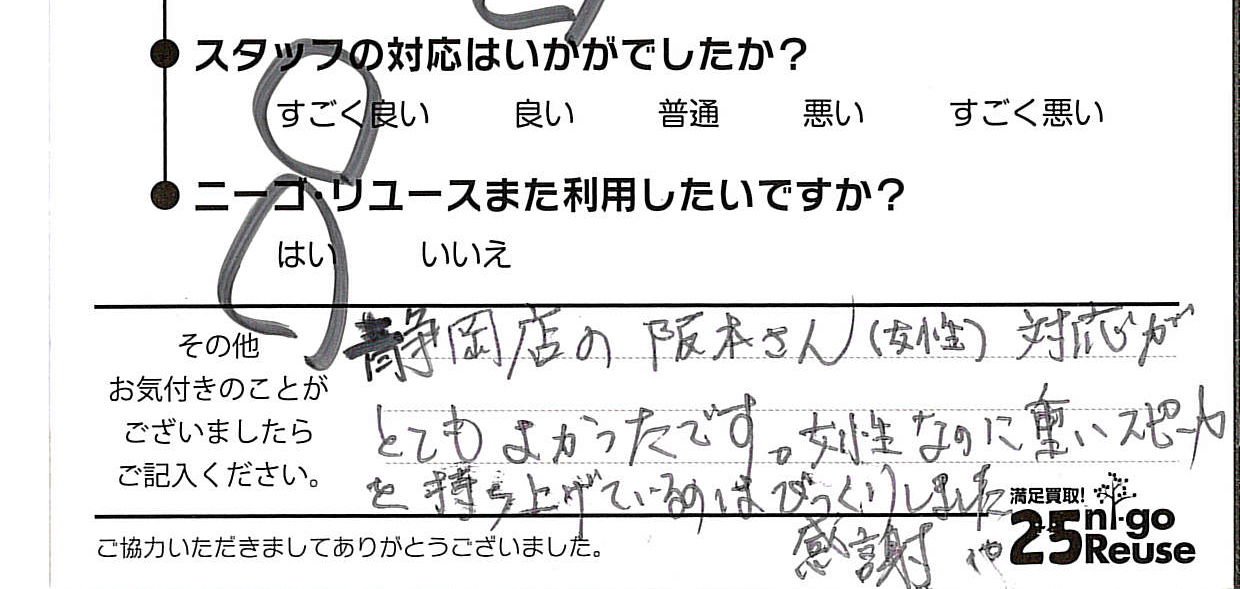 スタッフの対応はいかがでしたか?
すごく良い 良い 普通 悪い すごく悪い
ニーゴ・リユースまた利用したいですか?
はい いいえ
その他
お気付きのことが
ございましたら
ご記入ください。
静岡店の阪本さん(女性)対応が
とてもよかったです。女性なのに重いスピーカ
を持ち上げているのはびっくりしました
感謝
満足買取!
25 ni-go
Reuse
ご協力いただきましてありがとうございました。